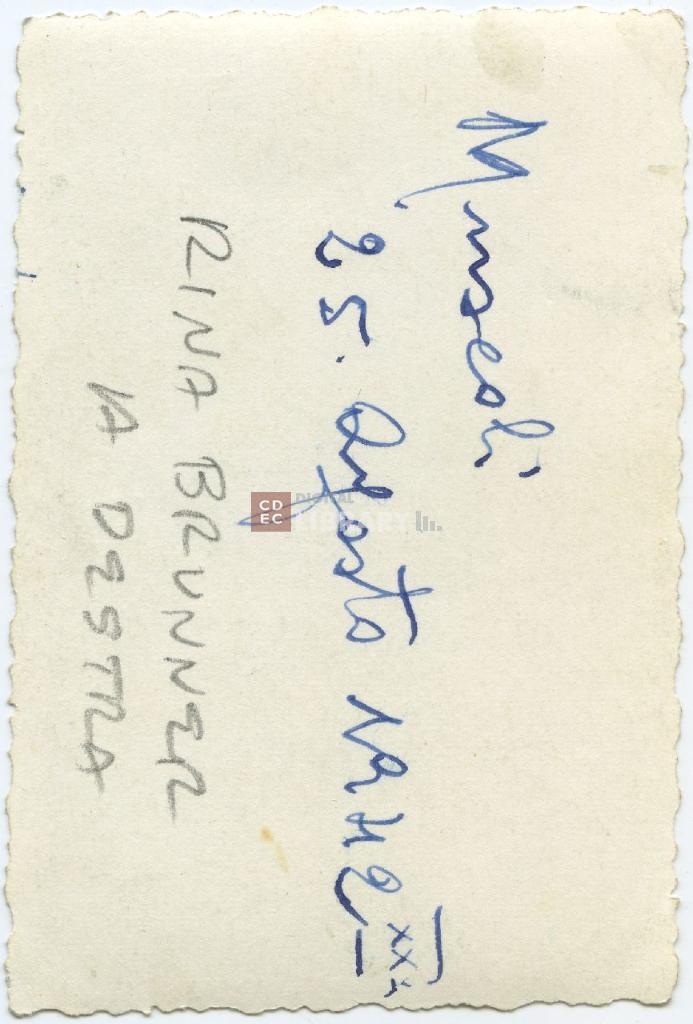 Muscoli,
25. Agosto 1942 XX
RINA BRUNNER
A DESTRA
CD
EC
DIGITAL
LIBRARY